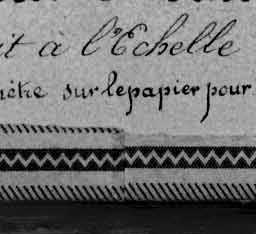 it à l'Echelle
mètre sur le papier pour